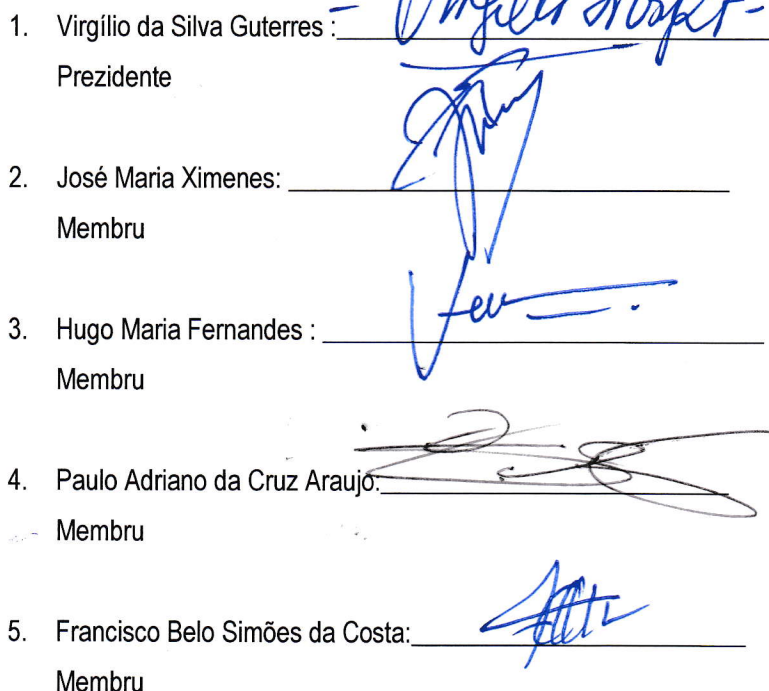 1. Virgílio da Silva Guterres :
Prezidente
2. José Maria Ximenes:
Membru
3. Hugo Maria Fernandes :
Membru
4. Paulo Adriano da Cruz Araujo:
Membru
5. Francisco Belo Simões da Costa:
Membru